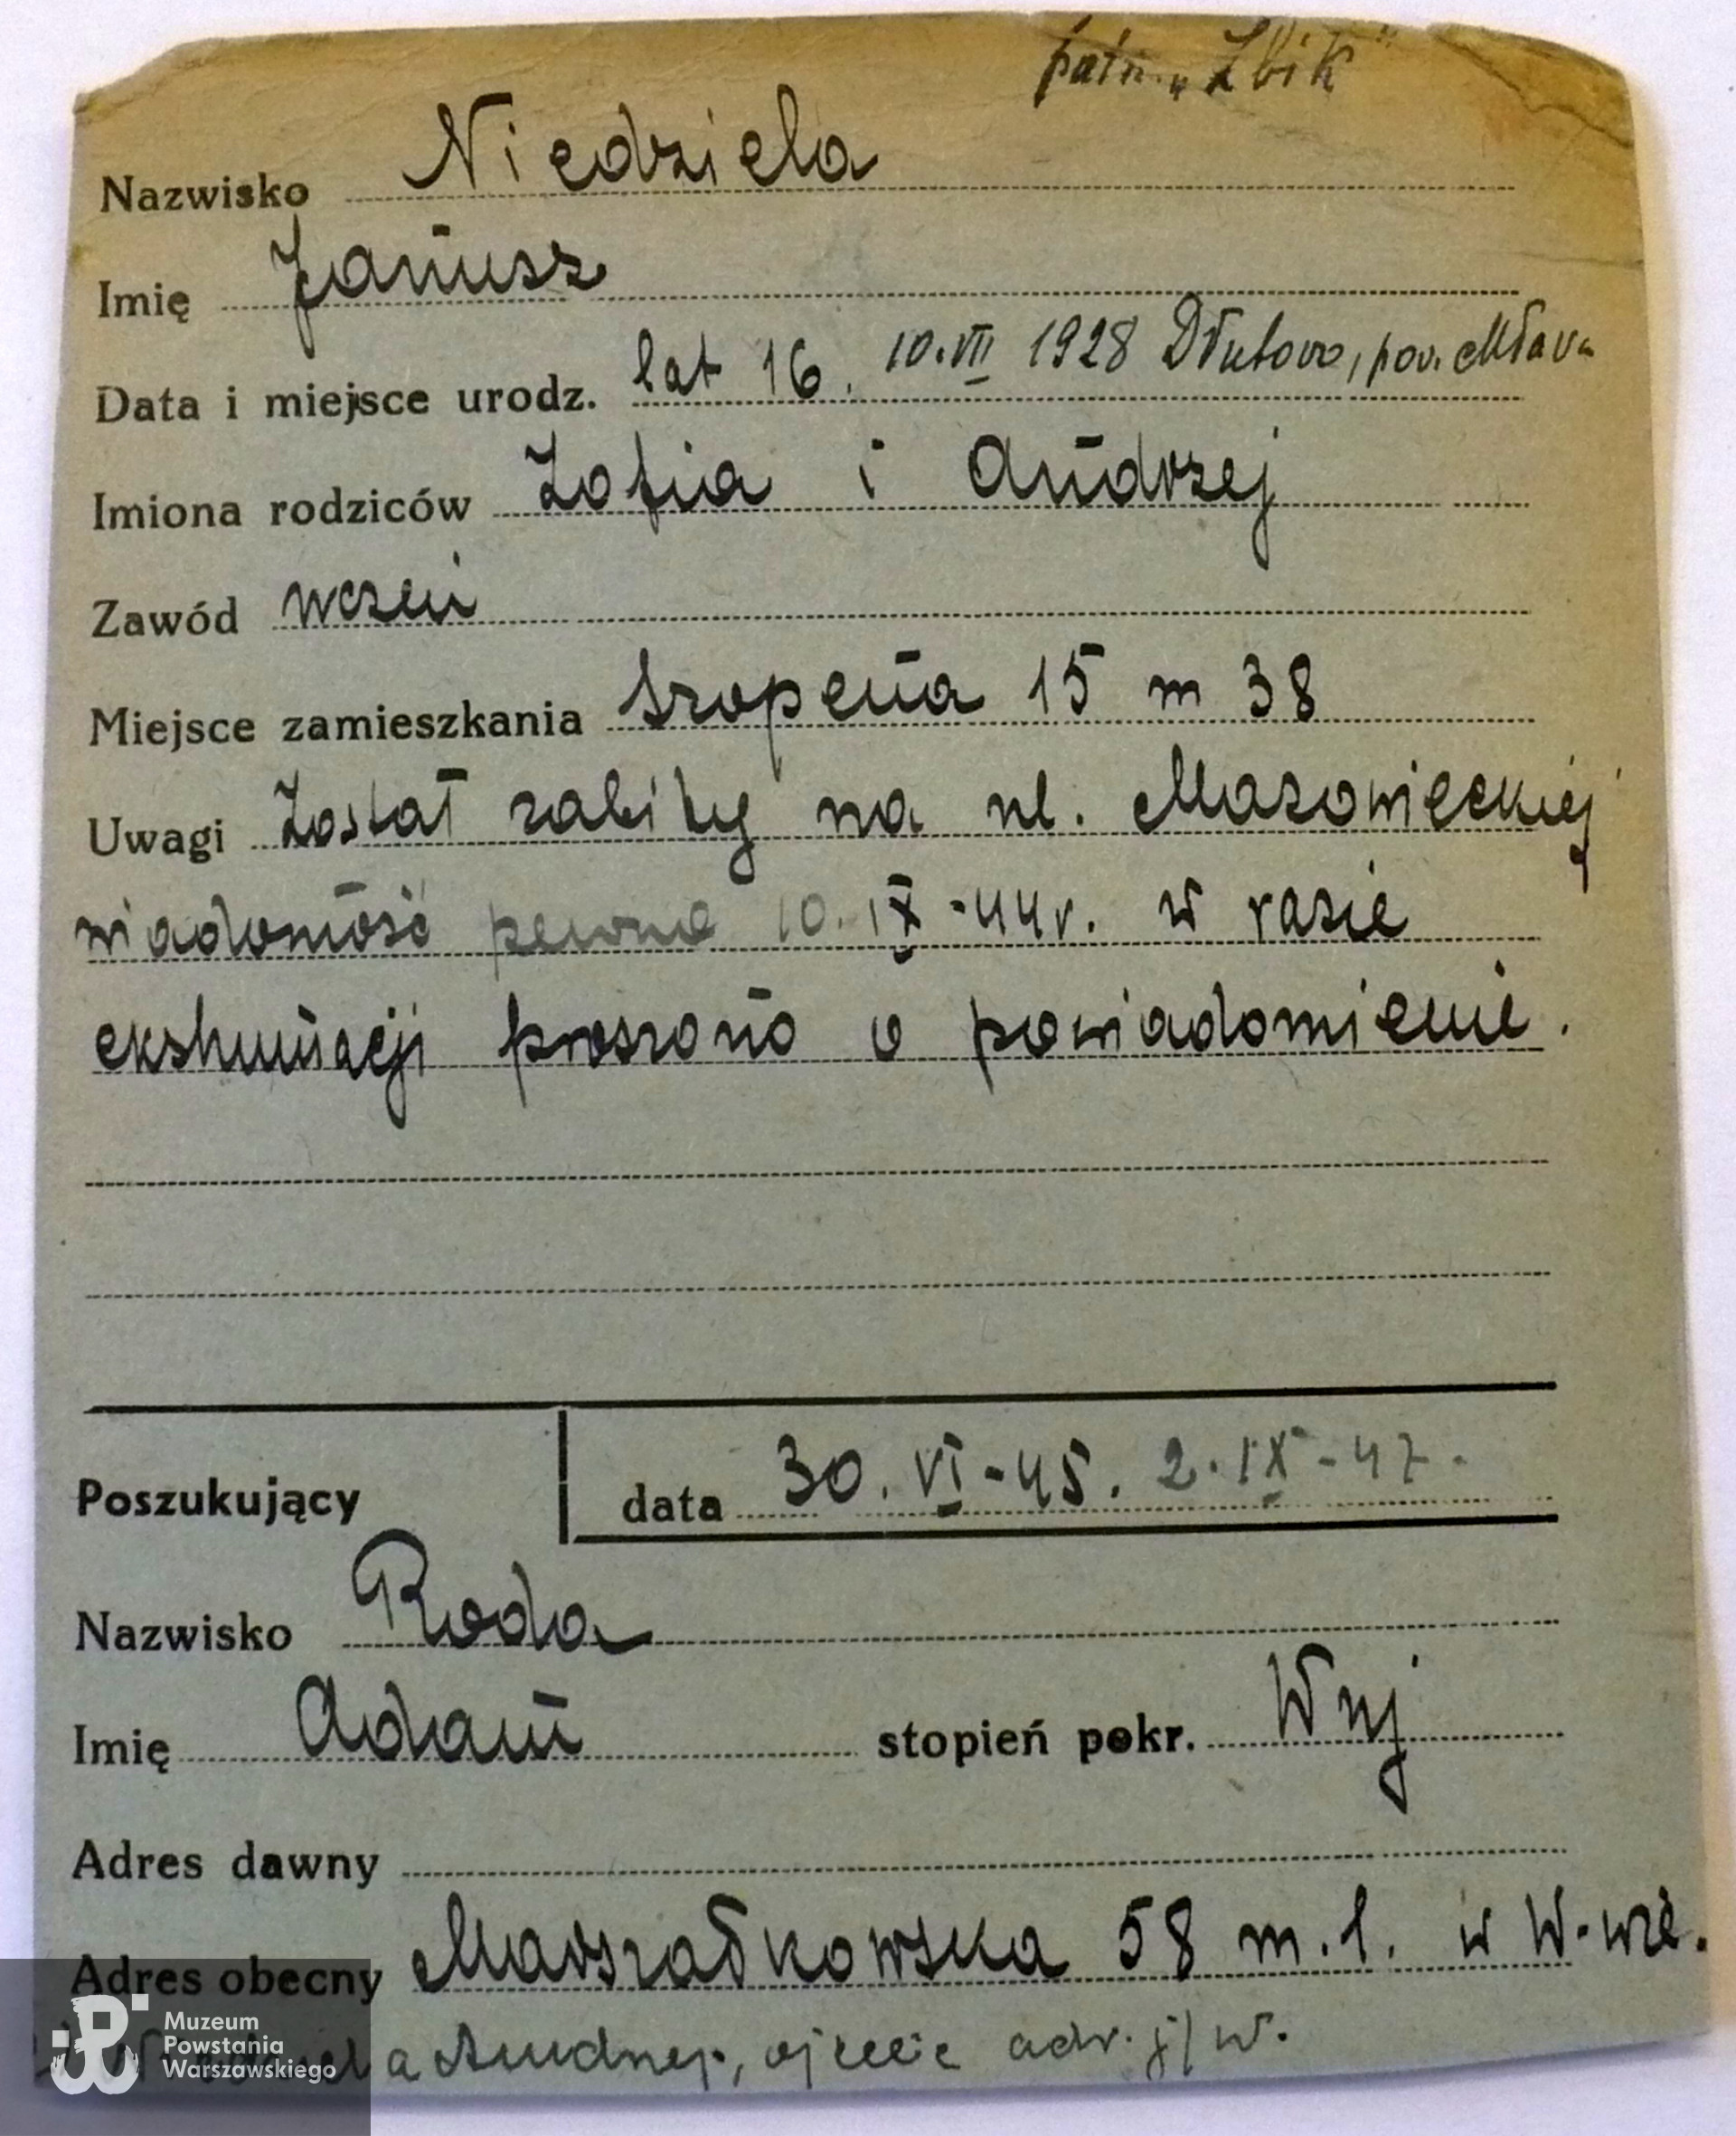 psdn. „Żbik"
Nazwisko Niedziela
Imię Janusz
Data i miejsce urodz. lat 16. 10.VII 1928 Dłutowo, pow. Mława
Imiona rodziców Zofia i Andrzej
Zawód uczeń
Miejsce zamieszkania Szopena 15 m 38
Uwagi Został zabity na ul. Mazowieckiej
wiadomość pewna 10.IX-44r. w razie
ekshumacji proszono o powiadomienie.
Poszukujący data 30.VI-45. 2.IX-47.
Nazwisko Roda
Imię Adam stopień pokr. Wuj
Adres dawny
Adres obecny Marszałkowska 58 m. 1. w W-wie.
Niedziela Andrzej, ojciec adr. j/w.
Muzeum
Powstania
Warszawskiego